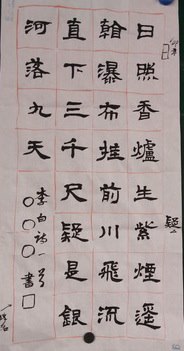 日照香爐生紫煙遥
看瀑布挂前川飛流
直下三千尺疑是銀
河落九天
李白詩一首
○○○書□
疑